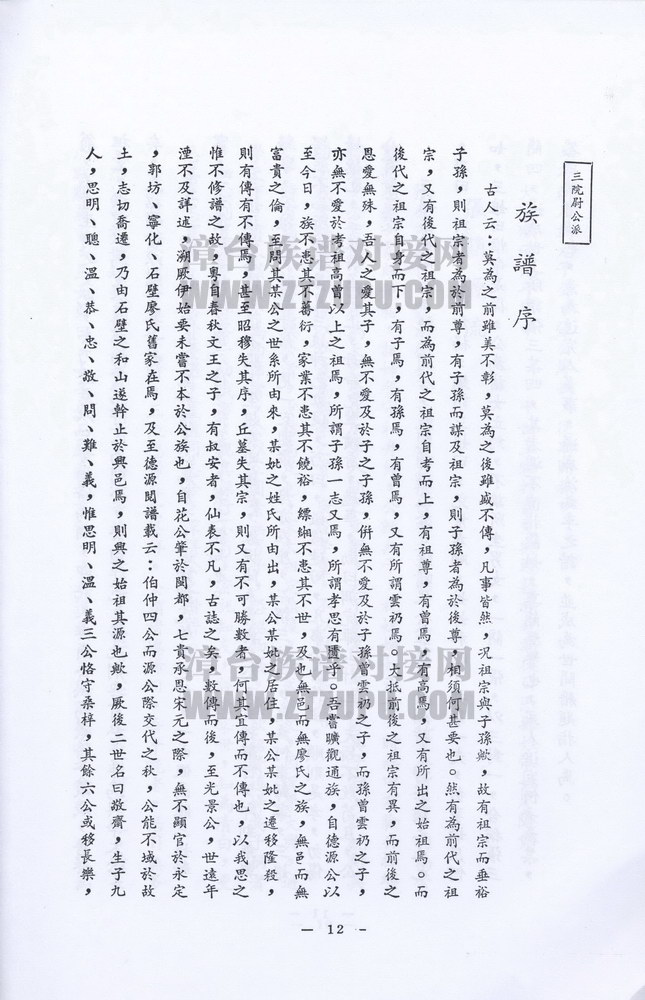 三院尉公派
族譜序
古人云：莫為之前雖美不彰，莫為之後雖盛不傳，凡事皆然，況祖宗與子孫歟，故有祖宗而垂裕
子孫，則祖宗者為於前尊，有子孫而謀及祖宗，則子孫者為於後尊，相須何甚要也。然有為前代之祖
宗，又有後代之祖宗，而為前代之祖宗自考而上，有祖尊，有曾焉，有高焉，又有所出之始祖焉。而
後代之祖宗自身而下，有子焉，有孫焉，有曾焉，又有所謂雲礽焉。大抵前後之祖宗有異，而前後之
恩愛無殊，吾人之愛其子，無不愛及於子之子孫，併無不愛及於子孫曾雲礽之子，而孫曾雲礽之子，
亦無不愛於考祖高曾以上之祖焉，所謂子孫一志又焉，所謂孝思有遺乎。吾嘗曠觀通族，自德源公以
至今日，族不患其不蕃衍，家業不患其不饒裕，縹緗不患其不世，及也無邑而無廖氏之族，無邑而無
富貴之倫，至問其某公之世系所由來，某妣之姓氏所由出，某公某妣之居住，某公某妣之遷移隆殺，
則有傳有不傳焉，甚至昭穆失其序，丘墓失其宗，則又有不可勝數者，何其宜傳而不傳也，以我思之
惟不修譜之故，粵自春秋文王之子，有叔安者，仙表不凡，古誌之矣，數傳而後，至光景公，世遠年
湮不及詳述，溯厥伊始要未嘗不本於公族也，自花公肇於閩都，七貴承恩宋元之際，無不顯官於永定
，郭坊、寧化、石壁廖氏舊家在焉，及至德源閱譜載云：伯仲四公而源公際交代之秋，公能不域於故
土，志切喬遷，乃由石壁之和山遂幹止於興邑焉，則興之始祖其源也歟，厥後二世名曰敬齋，生子九
人，思明、聰、溫、恭、忠、敬、問、難、義，惟思明、溫、義三公恪守桑梓，其餘六公或移長樂，
漳台族谱对接网
WWW.ZTZUPU.COM
漳台族谱对接网
WWW.ZTZUPU.COM
— 12 -